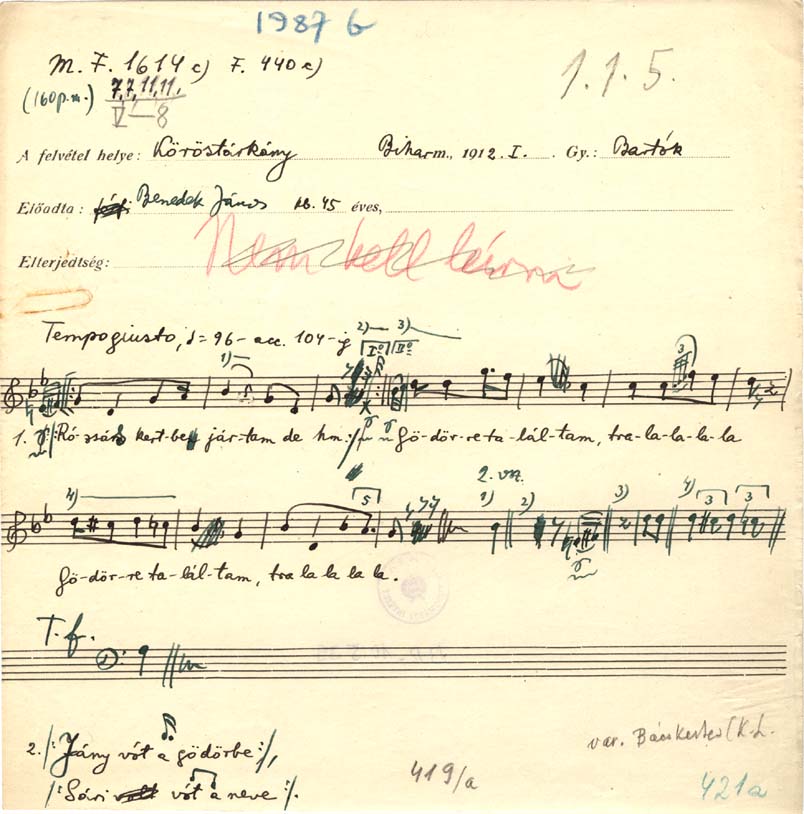 1987 b
M. F. 1614 c) F. 440 c)
1. 1. 5.
(160 p.m.) 7,7,11,11.
V—8
A felvétel helye: Köröstárkány Biharm., 1912. I. Gy.: Bartók
Előadta: Benedek János kb. 45 éves,
Elterjedtség: Nem kell leírni
Tempo giusto, ♩= 96- acc. 104-ig
1) 2) 3) Iº IIº 3
1. /:Ró-zsás kert-be jár-tam de hm:/ Gö-dör-re ta-lál-tam, tra-la-la-la-la
2. vsz.
4) 5 1) 2) 3) 4) 3 3
Gö-dör-re ta-lál-tam, tra la la la la.
T. f.
2. /: Jány vót a gödörbe :/,
/: Sári vót a neve :/.
var. Bácskertes (K. L.
419/a
421a